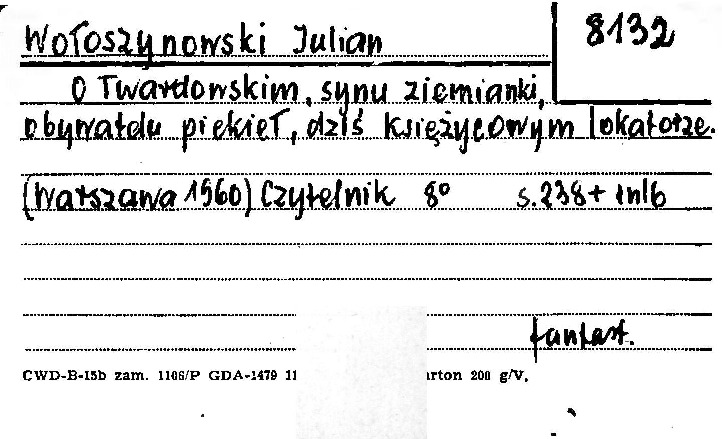 Wołoszynowski Julian
8132
O Twardowskim, synu ziemianki,
obywatelu piekieł, dziś księżycowym lokatorze.
(Warszawa 1960) Czytelnik 8° s. 238 + 2nlb
fantast.
CWD-B-15b zam. 1106/P GDA-1479 11 rton 200 g/V,